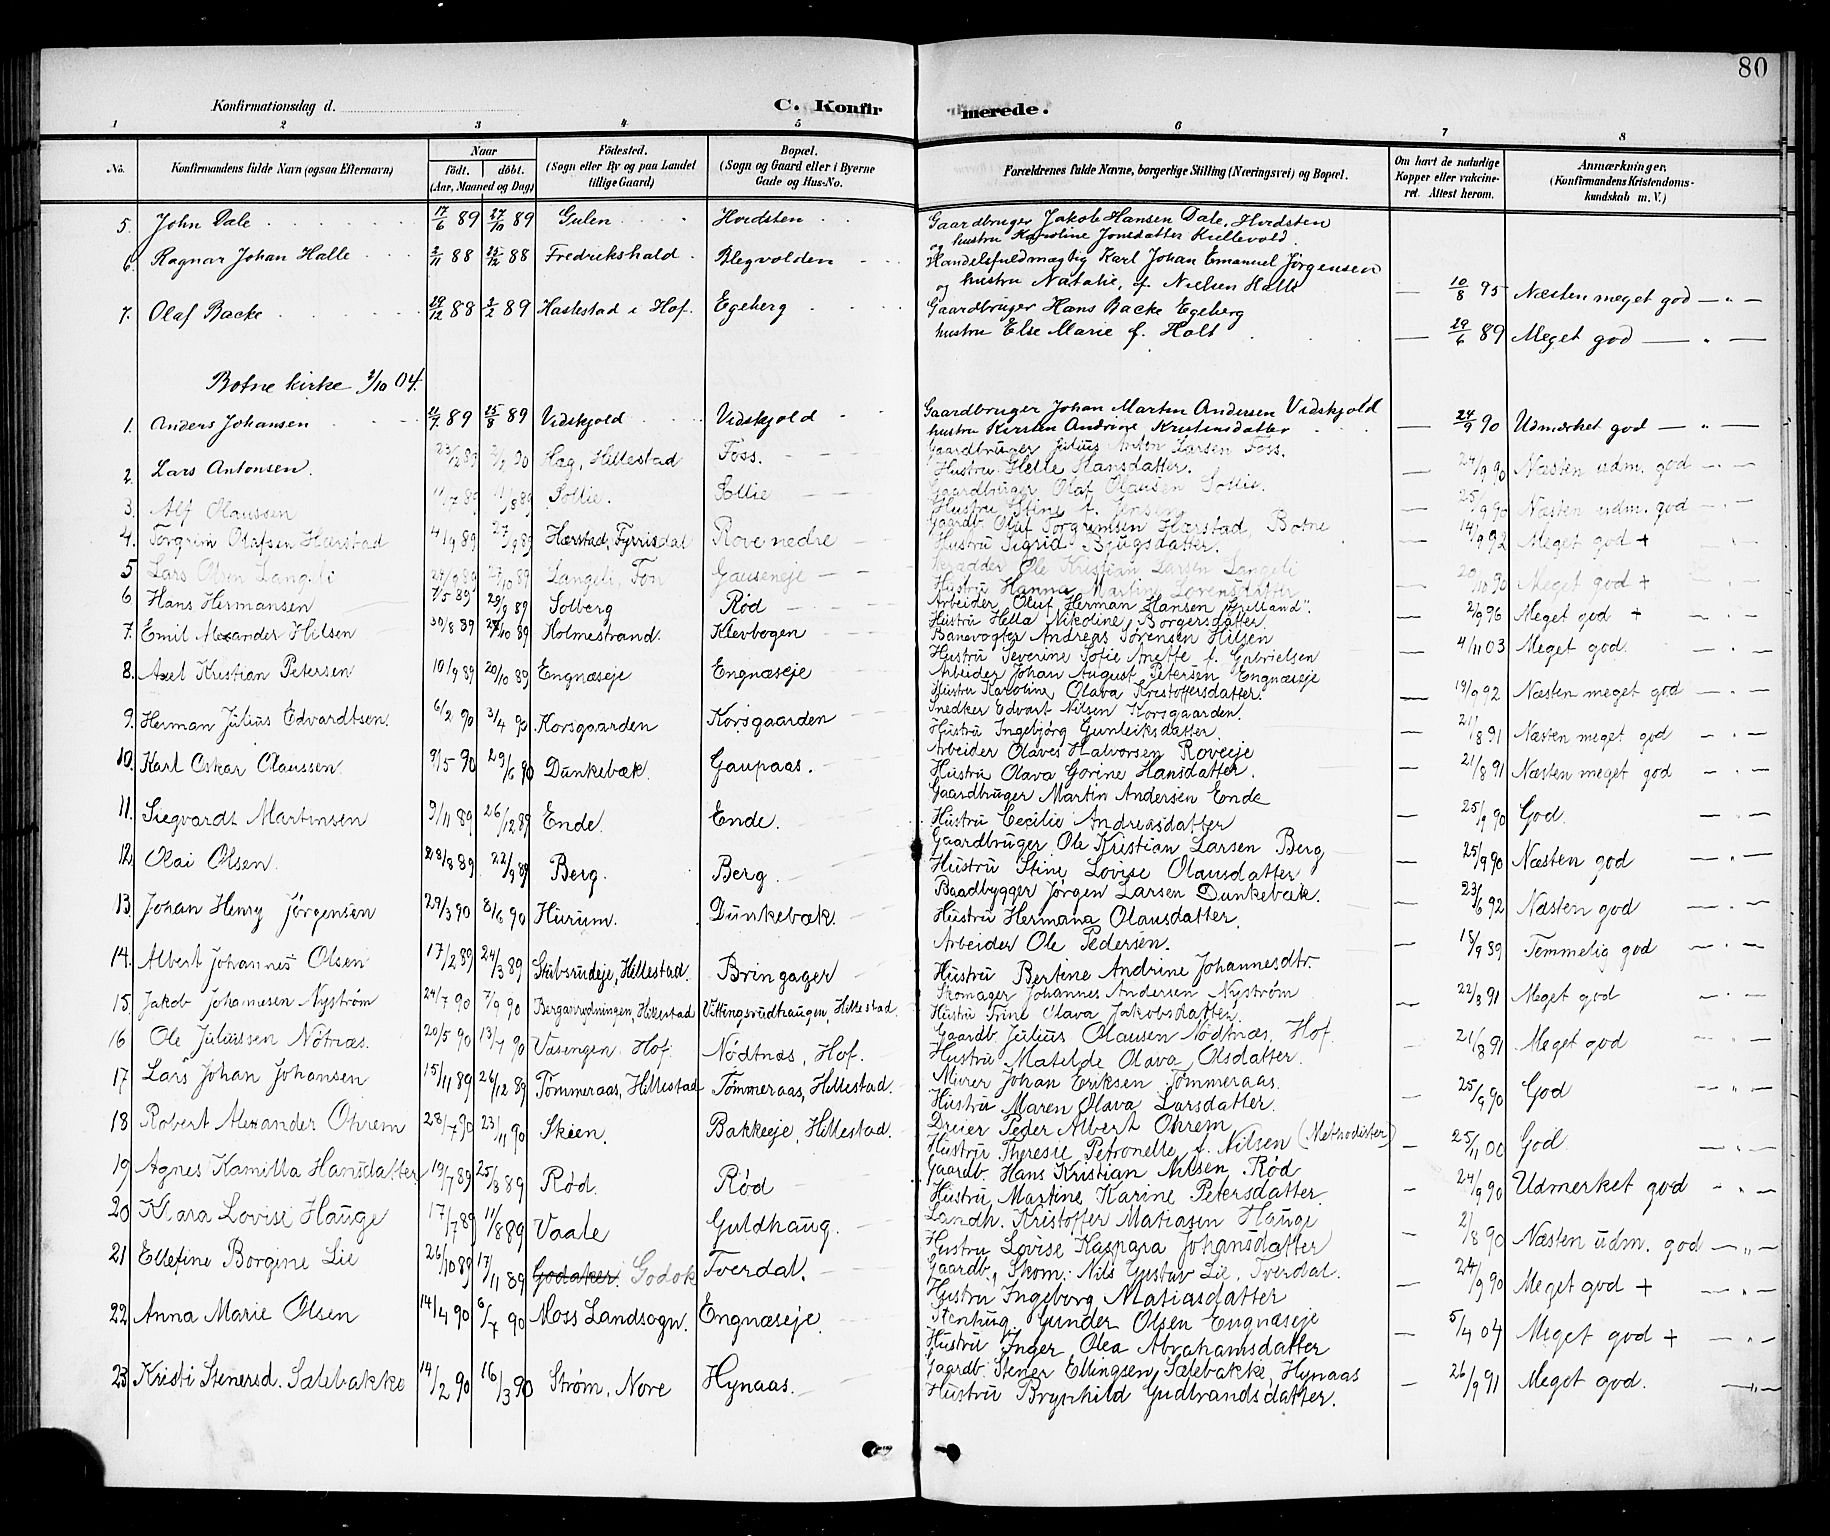 80
Konfirmationsdag d.
C. Konfirmerede.
1 2 3 4 5 6 7 8
No. Konfirmandens fulde Navn (ogsaa Efternavn) Naar født. døbt. (Aar, Maaned og Dag) Fødested. (Sogn eller By og paa Landet tillige Gaard) Bopæl. (Sogn og Gaard eller i Byerne Gade og Hus-No. Forældrenes fulde Navne, borgerlige Stilling (Næringsvei) og Bopæl. Om havt de naturlige Kopper eller vakcineret. Attest herom. Anmærkninger, (Konfirmandens Kristendomskundskab m. V.)
5. John Dale 17/6 89 27/10 89 Gulen Hvidsten Gaardbruger Jakob Hansen Dale, Hvidsten
og hustru Karoline Jonsdatter Killevold.
6. Ragnar Johan Halle 2/11 88 25/12 88 Fredrikshald Blegvolden Handelsfuldmægtig Karl Johan Emanuel Jörgensen
og hustru Natalie, f. Nielsen Halle — 10/8 95 Næsten meget god — " —
7. Olaf Backe 29/12 88 2/2 89 Haslestad i Hof. Egeberg Gaardbruger Hans Backe Egeberg
hustru Else Marie f. Holt — 29/6 89 Meget god — " —
Botne kirke 2/10 04.
1. Anders Johansen 11/7 89 25/8 89 Vidskjold Vidskjold Gaardbruger Johan Martin Andersen Vidskjold
hustru Kirsten Andrine Kristinsdatter — 24/9 90 Udmærket god — " —
2. Lars Antonsen. 23/12 89 2/2 90 Hag, Hillestad Foss. Gaardbruger Julius Anton Larsen Foss.
Hustru Helle Hansdatter. — 24/9 90 Næsten udm. god — " —
3. Alf Olaussen 11/7 89 11/8 89 Sollie. Sollie Gaardbruger Olaf Olausen Sollie.
Hustru Stine f. Jensen — 25/9 90 Næsten udm. god — " —
4. Torgrim Olafsen Hærstad 4/9 89 27/9 89 Hærstad, Fyrrisdal Rove nedre Gaardb. Olaf Torgrimsen Hærstad, Botne
Hustru Sigrid Bjugsdatter. — 14/9 92 Meget god +
5 Lars Olsen Langeli 24/9 89 27/10 89 Langeli, Fon Gauseneje Ole Kristian Larsen Langeli
Hustru Hanna Martine Lorensdatter — 20/10 90 Meget god + — " —
6 Hans Hermansen 7/5 89 29/9 89 Solberg Rød Arbeider Oluf Herman Hansen "Grelland".
Hustru Hella Nikoline Borgersdatter. — 2/9 96 Meget god + — " —
7. Emil Alexander Hilsen 30/8 89 27/10 89 Holmestrand. Klevbogen Banevogter Andreas Sørensen Hilsen
Hustru Severine Sofie Anette f. Gabrielsen — 4/11 03 Meget god. — " —
8. Axel Kristian Petersen 10/9 89 20/10 89 Engnæseje Engnæseje Arbeider Johan August Petersen Engnæseje
Hustru Karoline Olava Kristoffersdatter. — 19/9 92 Næsten meget god — " —
9. Herman Julius Edvardtsen. 6/2 90 3/4 90 Korsgaarden Korsgaarden Snedker Edvart Nilsen Korsgaarden.
Hustru Ingebjørg Gunleiksdatter — 21/8 91 Næsten meget god — " —
10. Karl Oskar Olaussen 9/5 90 29/6 90 Dunkebæk. Gaupaas. Arbeider Olaves Halvorsen Roveeje
Hustru Olava Gorine Hansdatter. — 21/8 91 Næsten meget god — " —
11. Siegvardt Martinsen 9/11 89 26/12 89 Ende. Ende. Gaardbruger Martin Andersen Ende
Hustru Cecilie Andreasdatter — 25/9 90 God. — " —
12. Olai Olsen. 28/8 89 22/9 89 Berg. Berg. Gaardbruger Ole Kristian Larsen Berg
Hustru Stine Lovise Olausdatter — 25/9 90 Næsten god — " —
13. Johan Henry Jörgensen 29/3 90 8/6 90 Hurum. Dunkebæk. Baadbygger Jörgen Larsen Dunkebæk.
Hustru Hermana Olausdatter. — 23/6 92 Næsten god — " —
14. Albert Johannes Olsen 17/2 89 24/3 89 Stubsrudeje, Hillestad. Bringager Arbeider Ole Pedersen.
Hustru Bertine Andrine Johannesdtr. — 18/9 89 Temmelig god — " —
15. Jakob Johannesen Nyström 24/7 90 7/9 90 Berganrydningen, Hillestad Vittingsrudhaugen, Hillestad. Skomager Johannes Andersen Nyström
Hustru Trine Olava Jakobsdatter. — 22/8 91 Meget god — " —
16 Ole Juliussen Nötnæs. 20/5 90 13/7 90 Vasengen Hof. Nödtnæs, Hof. Gaardb. Julius Olausen Nödtnæs, Hof.
Hustru Matelde Olava Olsdatter. — 21/8 91 Meget god — " —
17 Lars Johan Johansen 15/11 89 26/12 89 Tømmeraas, Hillestad Tømmeraas, Hillestad. Murer Johan Eriksen Tømmeraas.
Hustru Maren Olava Larsdatter. — 25/9 90 God — " —
18 Robert Alexander Ohrem 28/7 90 23/11 90 Skien. Bakkeeje, Hillestad. Dreier Peder Albert Ohrem
Hustru Theresie Petronelle f. Nilsen (Methodister) — 25/11 00 God. — " —
19 Agnes Kamilla Hansdatter 19/7 89 25/8 89 Rød. Rød Gaardb. Hans Kristian Nilsen Rød
Hustru Martine Karine Petersdatter. — 24/9 90 Udmerket god — " —
20 Klara Lovise Hauge 17/7 89 11/8 89 Vaale Guldhaug. Landh. Kristoffer Matiasen Hauge
Hustru Lovise Kaspara Johansdatter — 2/8 90 Næsten udm. god — " —
21 Ellefine Borgine Lie 26/10 89 17/11 89 Godaker. Godok Tverdal. Gaardb., Skom. Nils Gustav Lie, Tverdal.
Hustru Ingeborg Matiasdatter — 24/9 90 Meget god + — " —
22 Anna Marie Olsen 14/4 90 6/7 90 Moss Landsogn. Engnæseje. Stenhug. Gunder Olsen Engnæseje
Hustru Inger Olea Abrahamsdatter — 5/4 04 Meget god + — " —
23 Kristi Stenersd. Sælebakke 14/2 90 16/3 90 Strøm, Nore Hynaas. Gaardb. Stener Ellingsen Sælebakke, Hynaas
Hustru Brynhild Gudbrandsdatter. — 26/9 91 Meget god. — " —